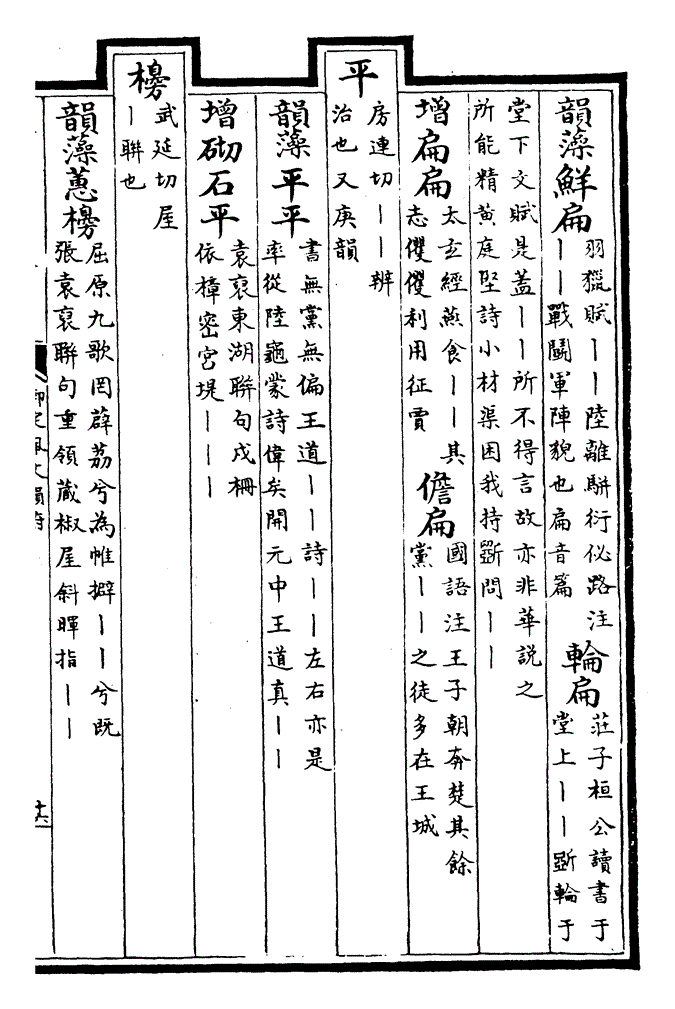 韻藻鮮扁
羽獵賦丨丨陸離駢衍佖路注
丨丨戰鬭軍陣貌也扁音篇
輪扁
莊子桓公讀書于
堂上丨丨斲輪于
堂下文賦是蓋丨丨所不得言故亦非華説之
所能精黄庭堅詩小材渠困我持斲問丨丨
增扁扁
太玄經燕食丨丨其
志戄戄利用征賈
儋扁
國語注王子朝奔楚其餘
黨丨丨之徒多在王城
平
房連切丨丨辨
治也又庚韻
韻藻平平
書無黨無偏王道丨丨詩丨丨左右亦是
率從陸龜蒙詩偉矣開元中王道真丨丨
增砌石平
袁裒東湖聯句戍柵
依樟密宫堤丨丨丨
櫋
武延切屋
丨聯也
韻藻蕙櫋
屈原九歌罔薜荔兮為帷擗丨丨兮既
張袁裒聯句重領蔵椒屋斜暉指丨丨